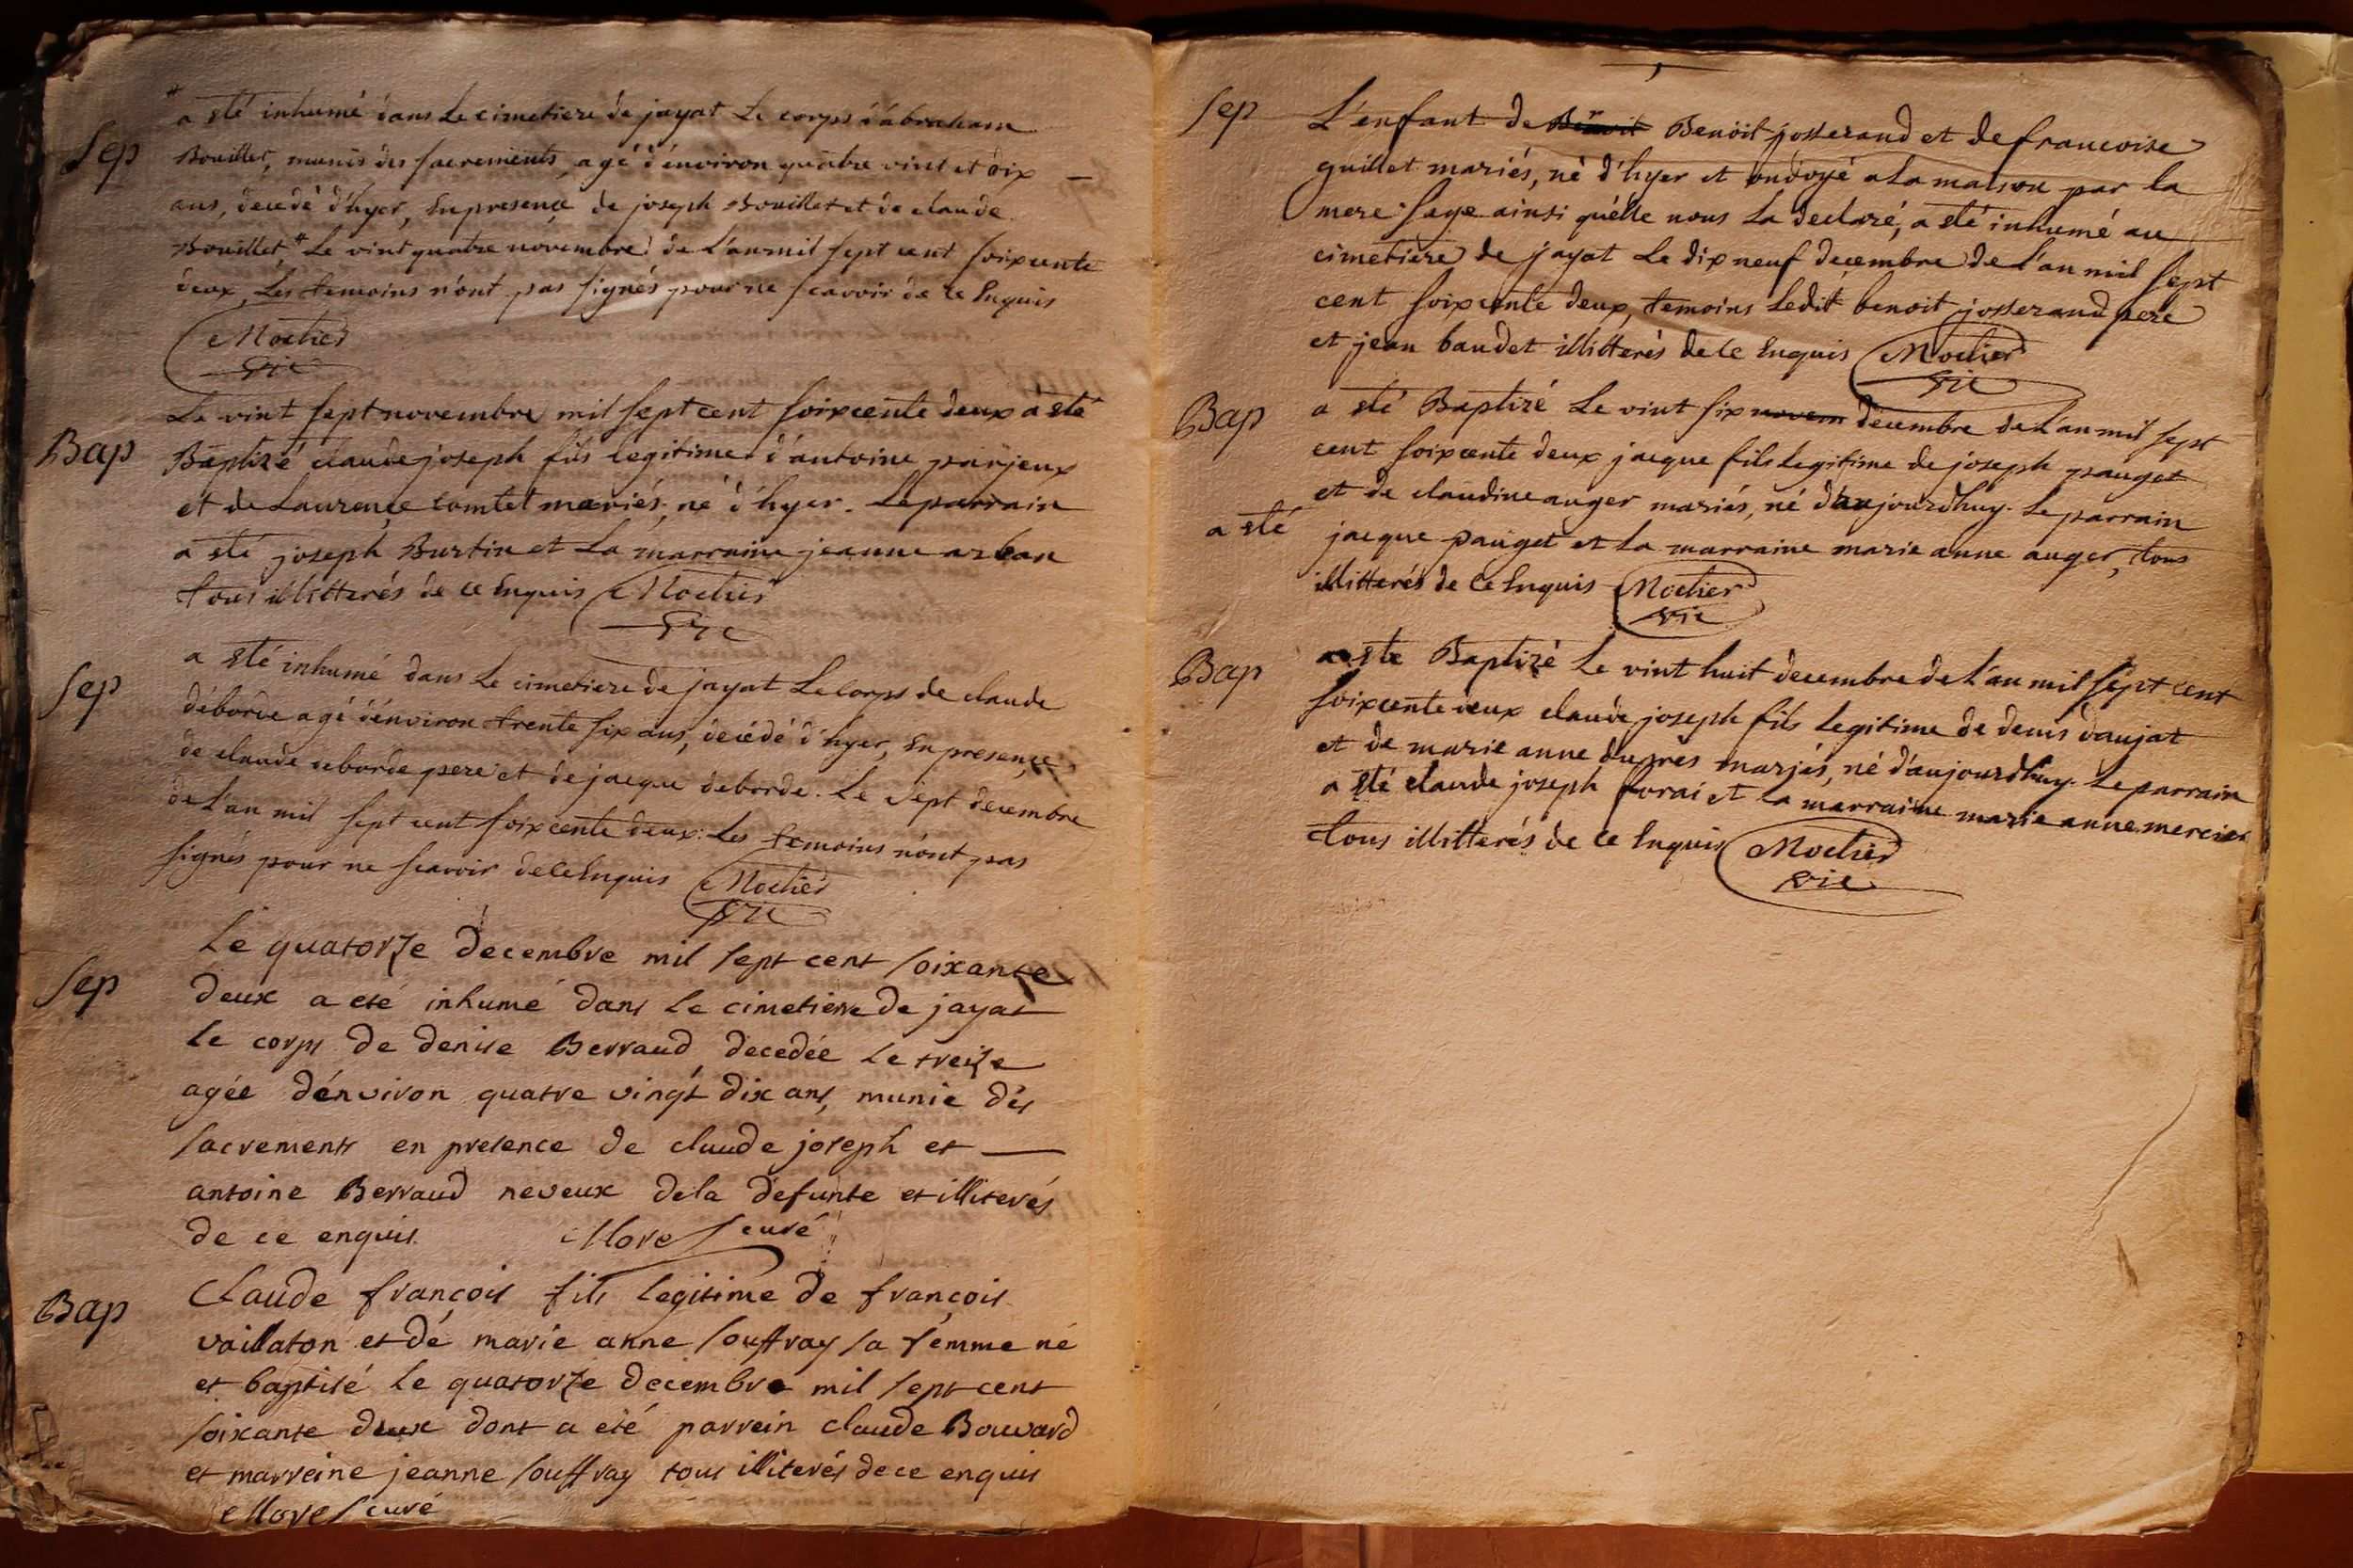 * a eté inhumé dans Le cimetiere de jayat Le corps d'abraham
Sep Bouillet, munis des sacrements, agé d'énviron quatre vint et dix —
ans, decedé d'hyer, En presence de joseph Bouillet et de claude
Bouillet * Le vint quatre novembre de L'an mil sept cent soixcente
deux, Les temoins n'ont pas signés pour ne scavoir de ce Enquis
Mochier
vic
Le vint sept novembre mil sept cent soixcente deux a eté
Bap Baptizé claude joseph fils legitime d'antoine panjeux
et de Laurence comtet mariés, né d'hyer. Le parrain
a eté joseph Burtin et La marraine jeanne arban
tous illitterés de ce Enquis Mochier
vic
a eté inhumé dans Le cimetiere de jayat Le corps de claude
Sep déborde agé d'énviron trente six ans, decédé d'hyer, En presence
de claude deborde pere et de jacque deborde. Le sept decembre
de L'an mil sept cent soixcente deux: Les temoins n'ont pas
signés pour ne scavoir de ce Enquis Mochier
vic
Le quatorze decembre mil sept cent soixante
Sep deux a eté inhumé dans Le cimetiere de jayat
Le corps de denise Berraud decedée Le treize
agée d'énviron quatre vingt dix ans, munie des
sacrements en presence de claude joseph et —
antoine Berraud neveux dela defunte et illiterés
de ce enquis. More curé
Claude françois fils legitime de françois
Bap vaillaton et dé marie anne souffray sa femme né
et baptisé Le quatorze decembre mil sept cent
soixante deux dont a eté parrein claude Bouvard
et marreine jeanne souffray tous illiterés de ce enquis
More curé
Sep L'enfant de Benoit Benoit josserand et de francoise
guillet mariés, né d'hyer et ondoyé a La maison par la
mere sage ainsi qu'elle nous La declaré, a eté inhumé au
cimetiere de jayat Le dix neuf decembre de L'an mil sept
cent soixcente deux, temoins Ledit benoit josserand pere
et jean baudet illitterés de ce Enquis Mochier
vic
Bap a eté Baptizé Le vint six novem decembre de L'an mil sept
cent soixcente deux jacque fils legitime de joseph pauget
et de claudine auger mariés, né d'aujourdhuy. Le parrain
a eté jacque pauget et La marraine marie anne auger, tous
illitterés de ce Enquis Mochier
vic
Bap a ete Baptizé Le vint huit decembre de L'an mil sept cent
soixcente deux claude joseph fils legitime de denis daujat
et de marie anne dupres mariés, né d'aujourdhuy. Le parrain
a eté claude joseph forai et La marraine marie anne mercier
tous illitterés de ce Enquis Mochier
vic